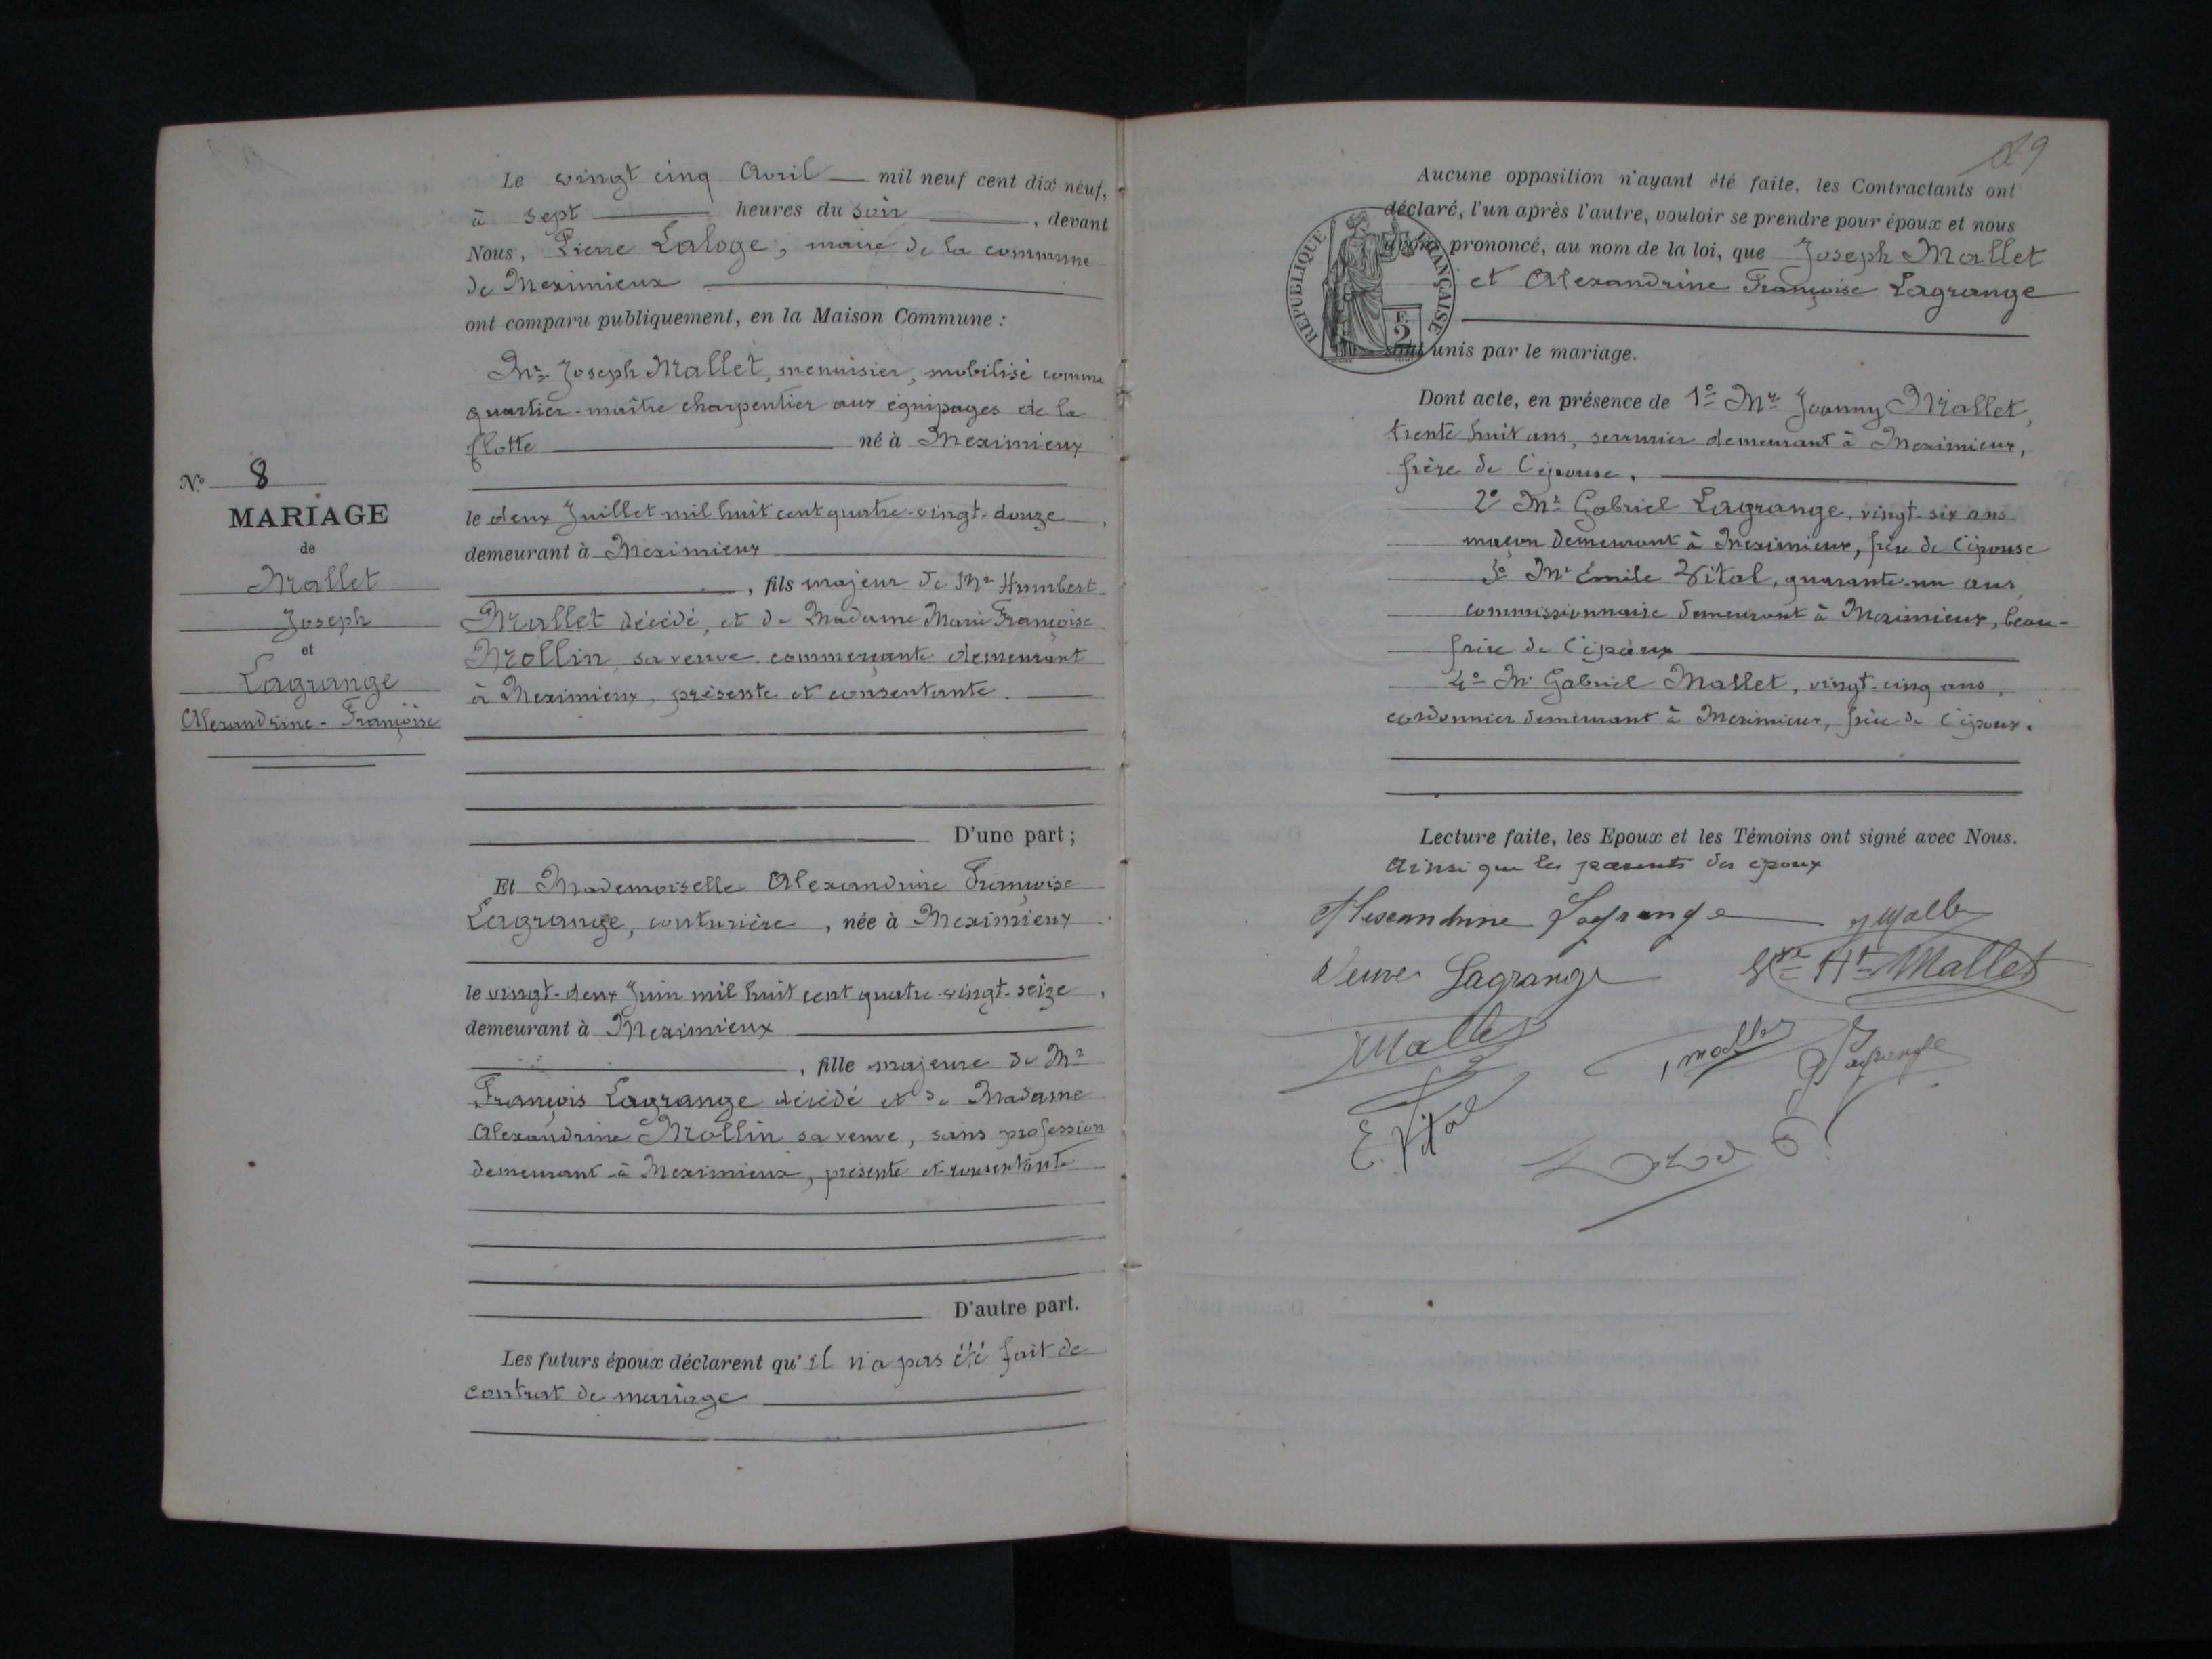 Le vingt cinq Avril mil neuf cent dix neuf,
à sept heures du soir, devant
Nous, Pierre Laloge, maire de la commune
de Meximieux
ont comparu publiquement, en la Maison Commune :
Mr Joseph Mallet, menuisier, mobilisé comme
quartier-maître charpentier aux équipages de la
flotte né à Meximieux
le deux Juillet mil huit cent quatre-vingt-douze,
demeurant à Meximieux
, fils majeur de Mr Humbert
Mallet décédé, et de Madame Marie Françoise
Mollin, sa veuve commerçante demeurant
à Meximieux, présente et consentante.
D'une part ;
Et Mademoiselle Alexandrine Françoise
Lagrange, couturière, née à Meximieux
le vingt-deux Juin mil huit cent quatre-vingt-seize,
demeurant à Meximieux
, fille majeure de Mr
François Lagrange décédé et de Madame
Alexandrine Mollin sa veuve, sans profession
demeurant à Meximieux, présente et consentante
D'autre part.
Les futurs époux déclarent qu'il n'a pas été fait de
contrat de mariage
No 8
MARIAGE
de
Mallet
Joseph
et
Lagrange
Alexandrine-Françoise
89
Aucune opposition n'ayant été faite, les Contractants ont
déclaré, l'un après l'autre, vouloir se prendre pour époux et nous
avons prononcé, au nom de la loi, que Joseph Mallet
et Alexandrine Françoise Lagrange
sont unis par le mariage.
REPUBLIQUE FRANÇAISE
F.
2
Dont acte, en présence de 1o Mr Joanny Mallet,
trente huit ans, serrurier demeurant à Meximieux,
frère de l'épouse.
2o Mr Gabriel Lagrange, vingt-six ans
maçon demeurant à Meximieux, frère de l'épouse
3o Mr Emile Vital, quarante-un ans,
commissionnaire demeurant à Meximieux, beau-
frère de l'époux
4o Mr Gabriel Mallet, vingt-cinq ans,
cordonnier demeurant à Meximieux, frère de l'époux.
Lecture faite, les Epoux et les Témoins ont signé avec Nous.
Ainsi que les parents des époux
Alexandrine Lagrange
J Mallet
Veuve Lagrange
Vve Ht Mallet
Mallet
Mallet
G Lagrange
E. Vital